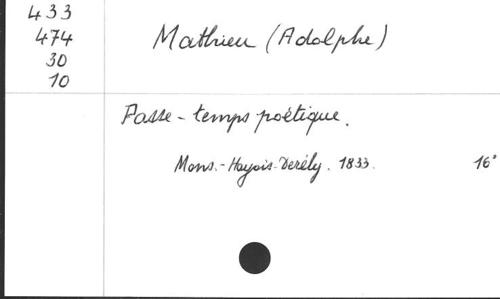 433
474
30
10
Mathieu (Adolphe)
Passe-temps poétique.
Mons.-Hoyois-Derély. 1833. 16°